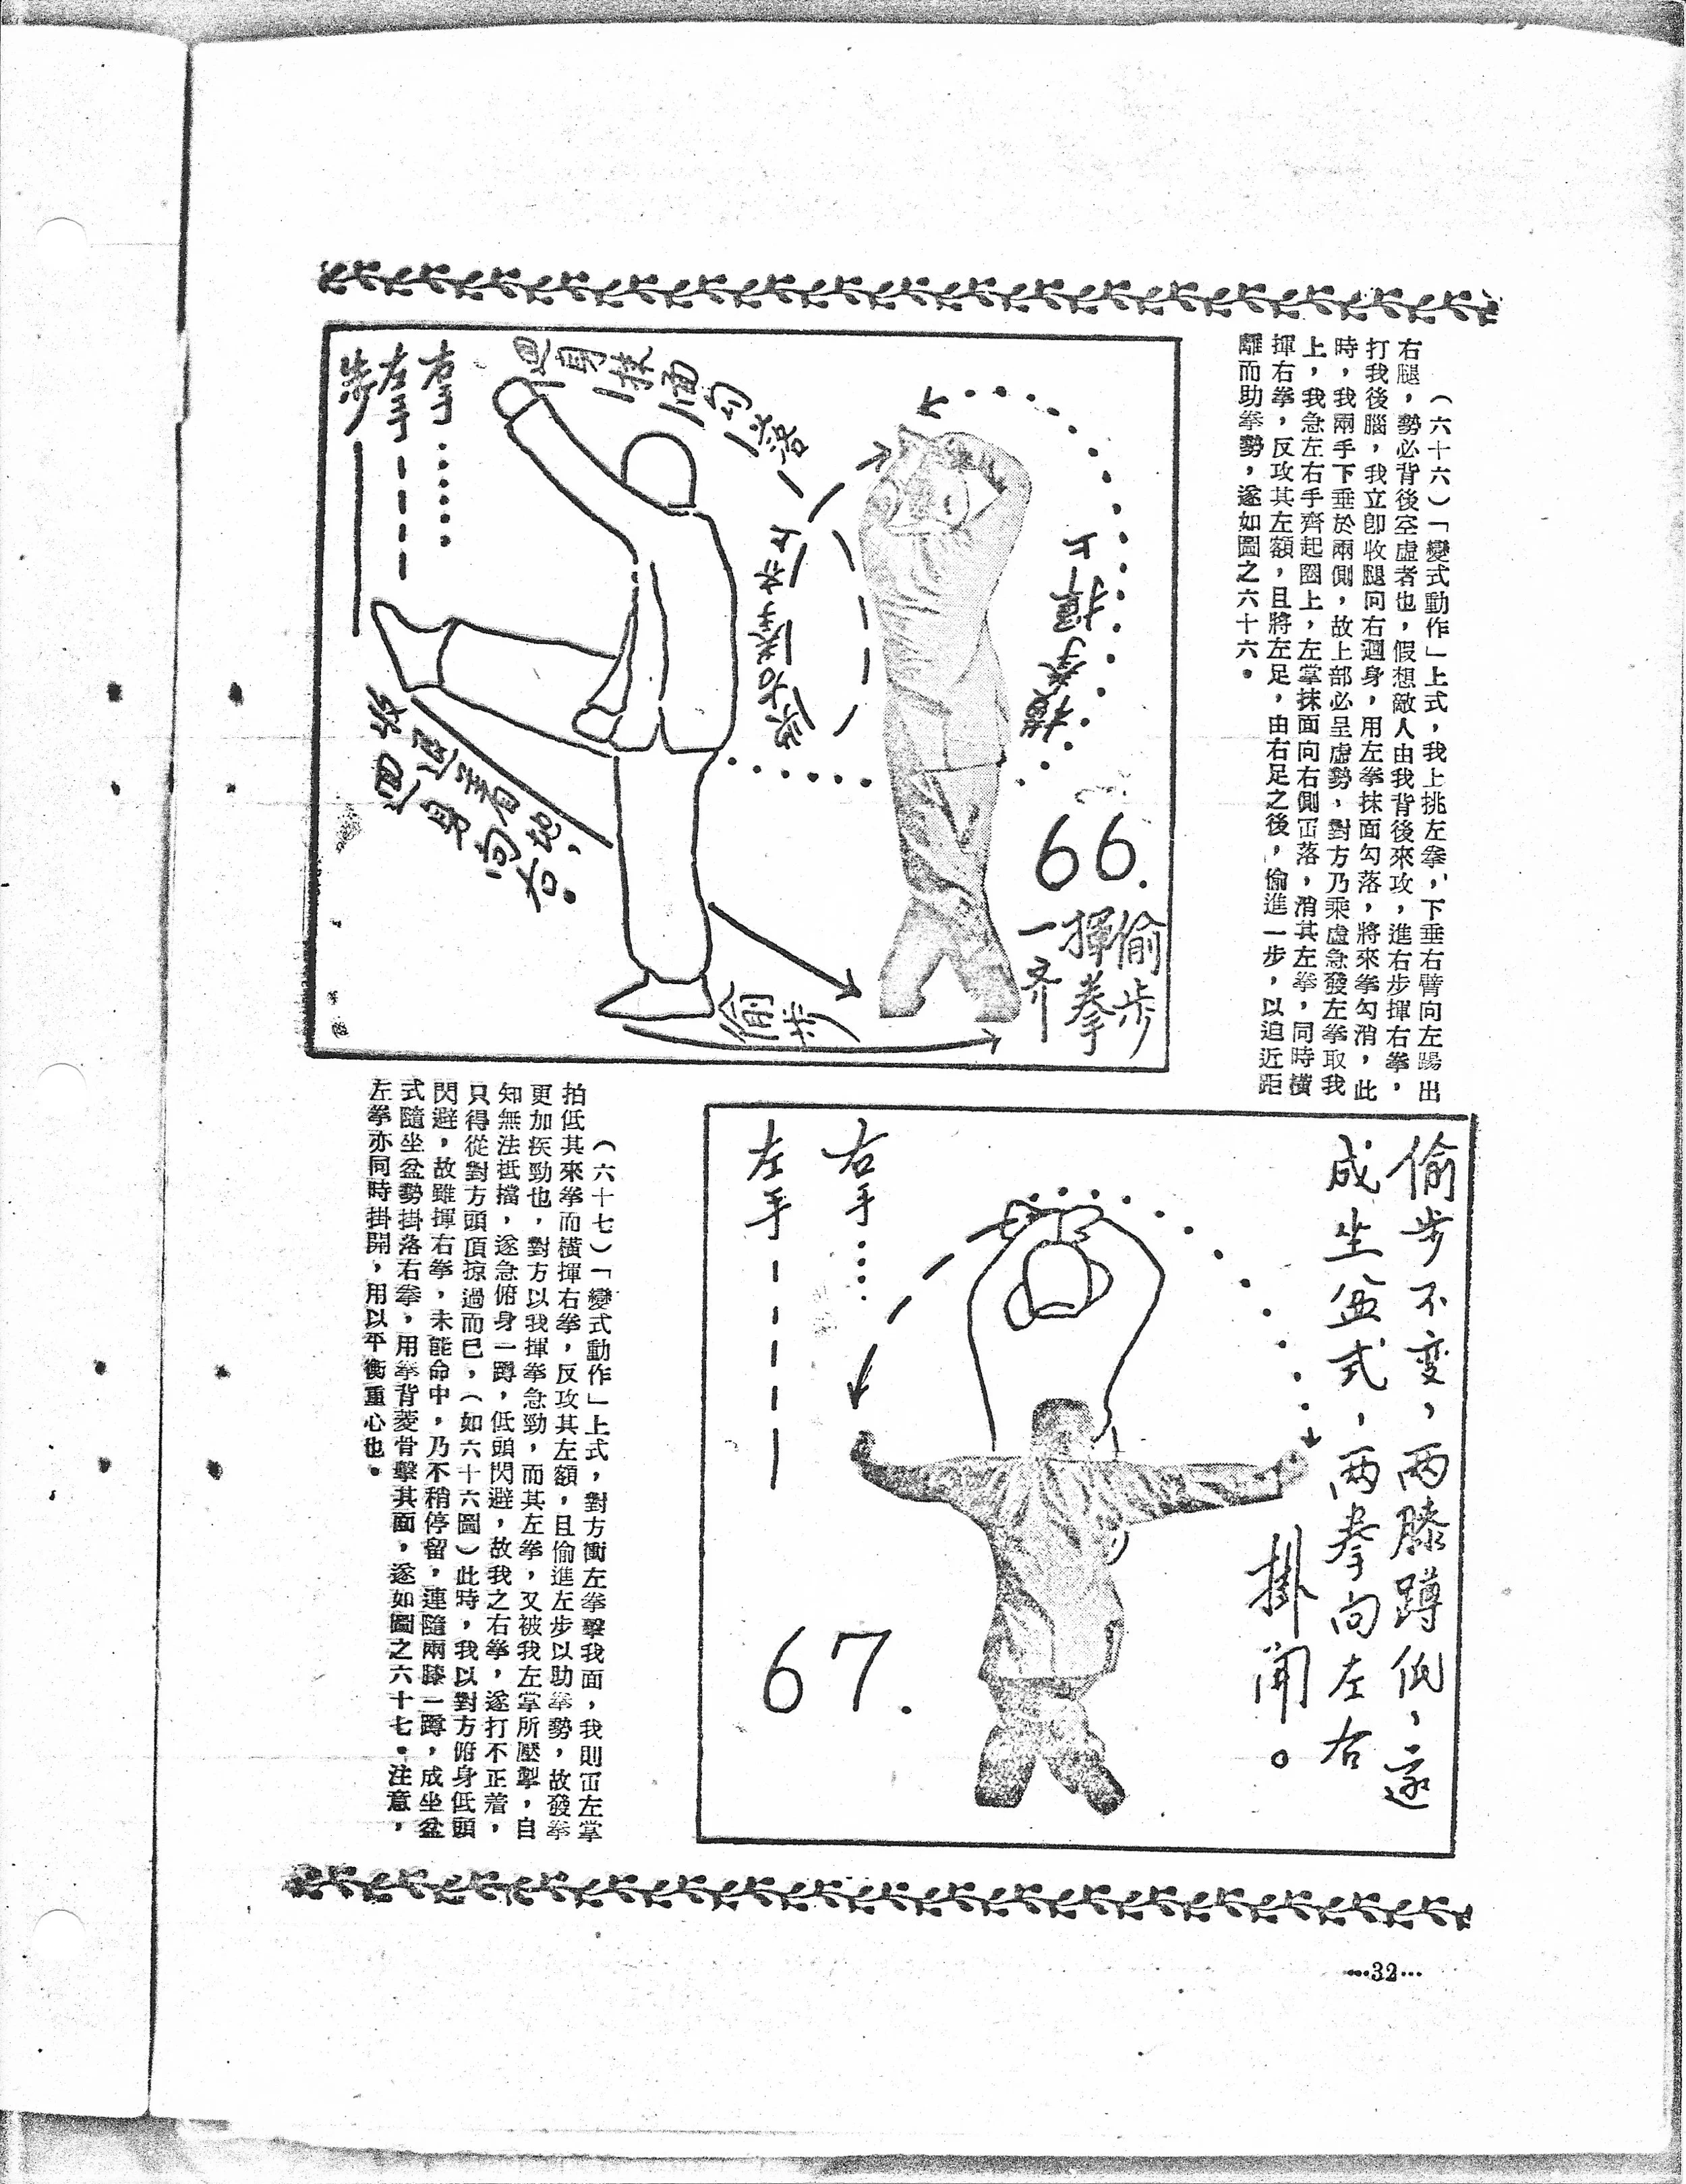 （六十六）「變式動作」上式，我上挑左拳，下垂右臂向左踢出
右腿，勢必背後空虛者也，假想敵人由我背後來攻，進右步揮右拳，
打我後腦，我立卽收腿向右迴身，用左拳抹面勾落，將來拳勾消，此
時，我兩手下垂於兩側，故上部必呈虛勢，對方乃乘虛急發左拳取我
上，我急左右手齊起圈上，左掌抹面向右側冚落，消其左拳，同時橫
揮右拳，反攻其左額，且將左足，由右足之後，偷進一步，以迫近距
離而助拳勢，遂如圖之六十六。
右手
左手
步
迴身抹面勾落
上揮
橫拳
66.
偷步
揮拳
一齐
收腿着地，
迴身向右。
偷步
偷步不变，两膝蹲低，遂
成坐盆式，两拳向左右
掛開。
右手
左手
67.
（六十七）「變式動作」上式，對方衝左拳擊我面，我則冚左掌
拍低其來拳而橫揮右拳，反攻其左額，且偷進左步以助拳勢，故發拳
更加疾勁也，對方以我揮拳急勁，而其左拳，又被我左掌所壓掣，自
知無法抵擋，遂急俯身一蹲，低頭閃避，故我之右拳，遂打不正着，
只得從對方頭頂掠過而已，（如六十六圖）此時，我以對方俯身低頭
閃避，故雖揮右拳，未能命中，乃不稍停留，連隨兩膝一蹲，成坐盆
式隨坐盆勢掛落右拳，用拳背菱骨擊其面，遂如圖之六十七。注意，
左拳亦同時掛開，用以平衡重心也。
…32…